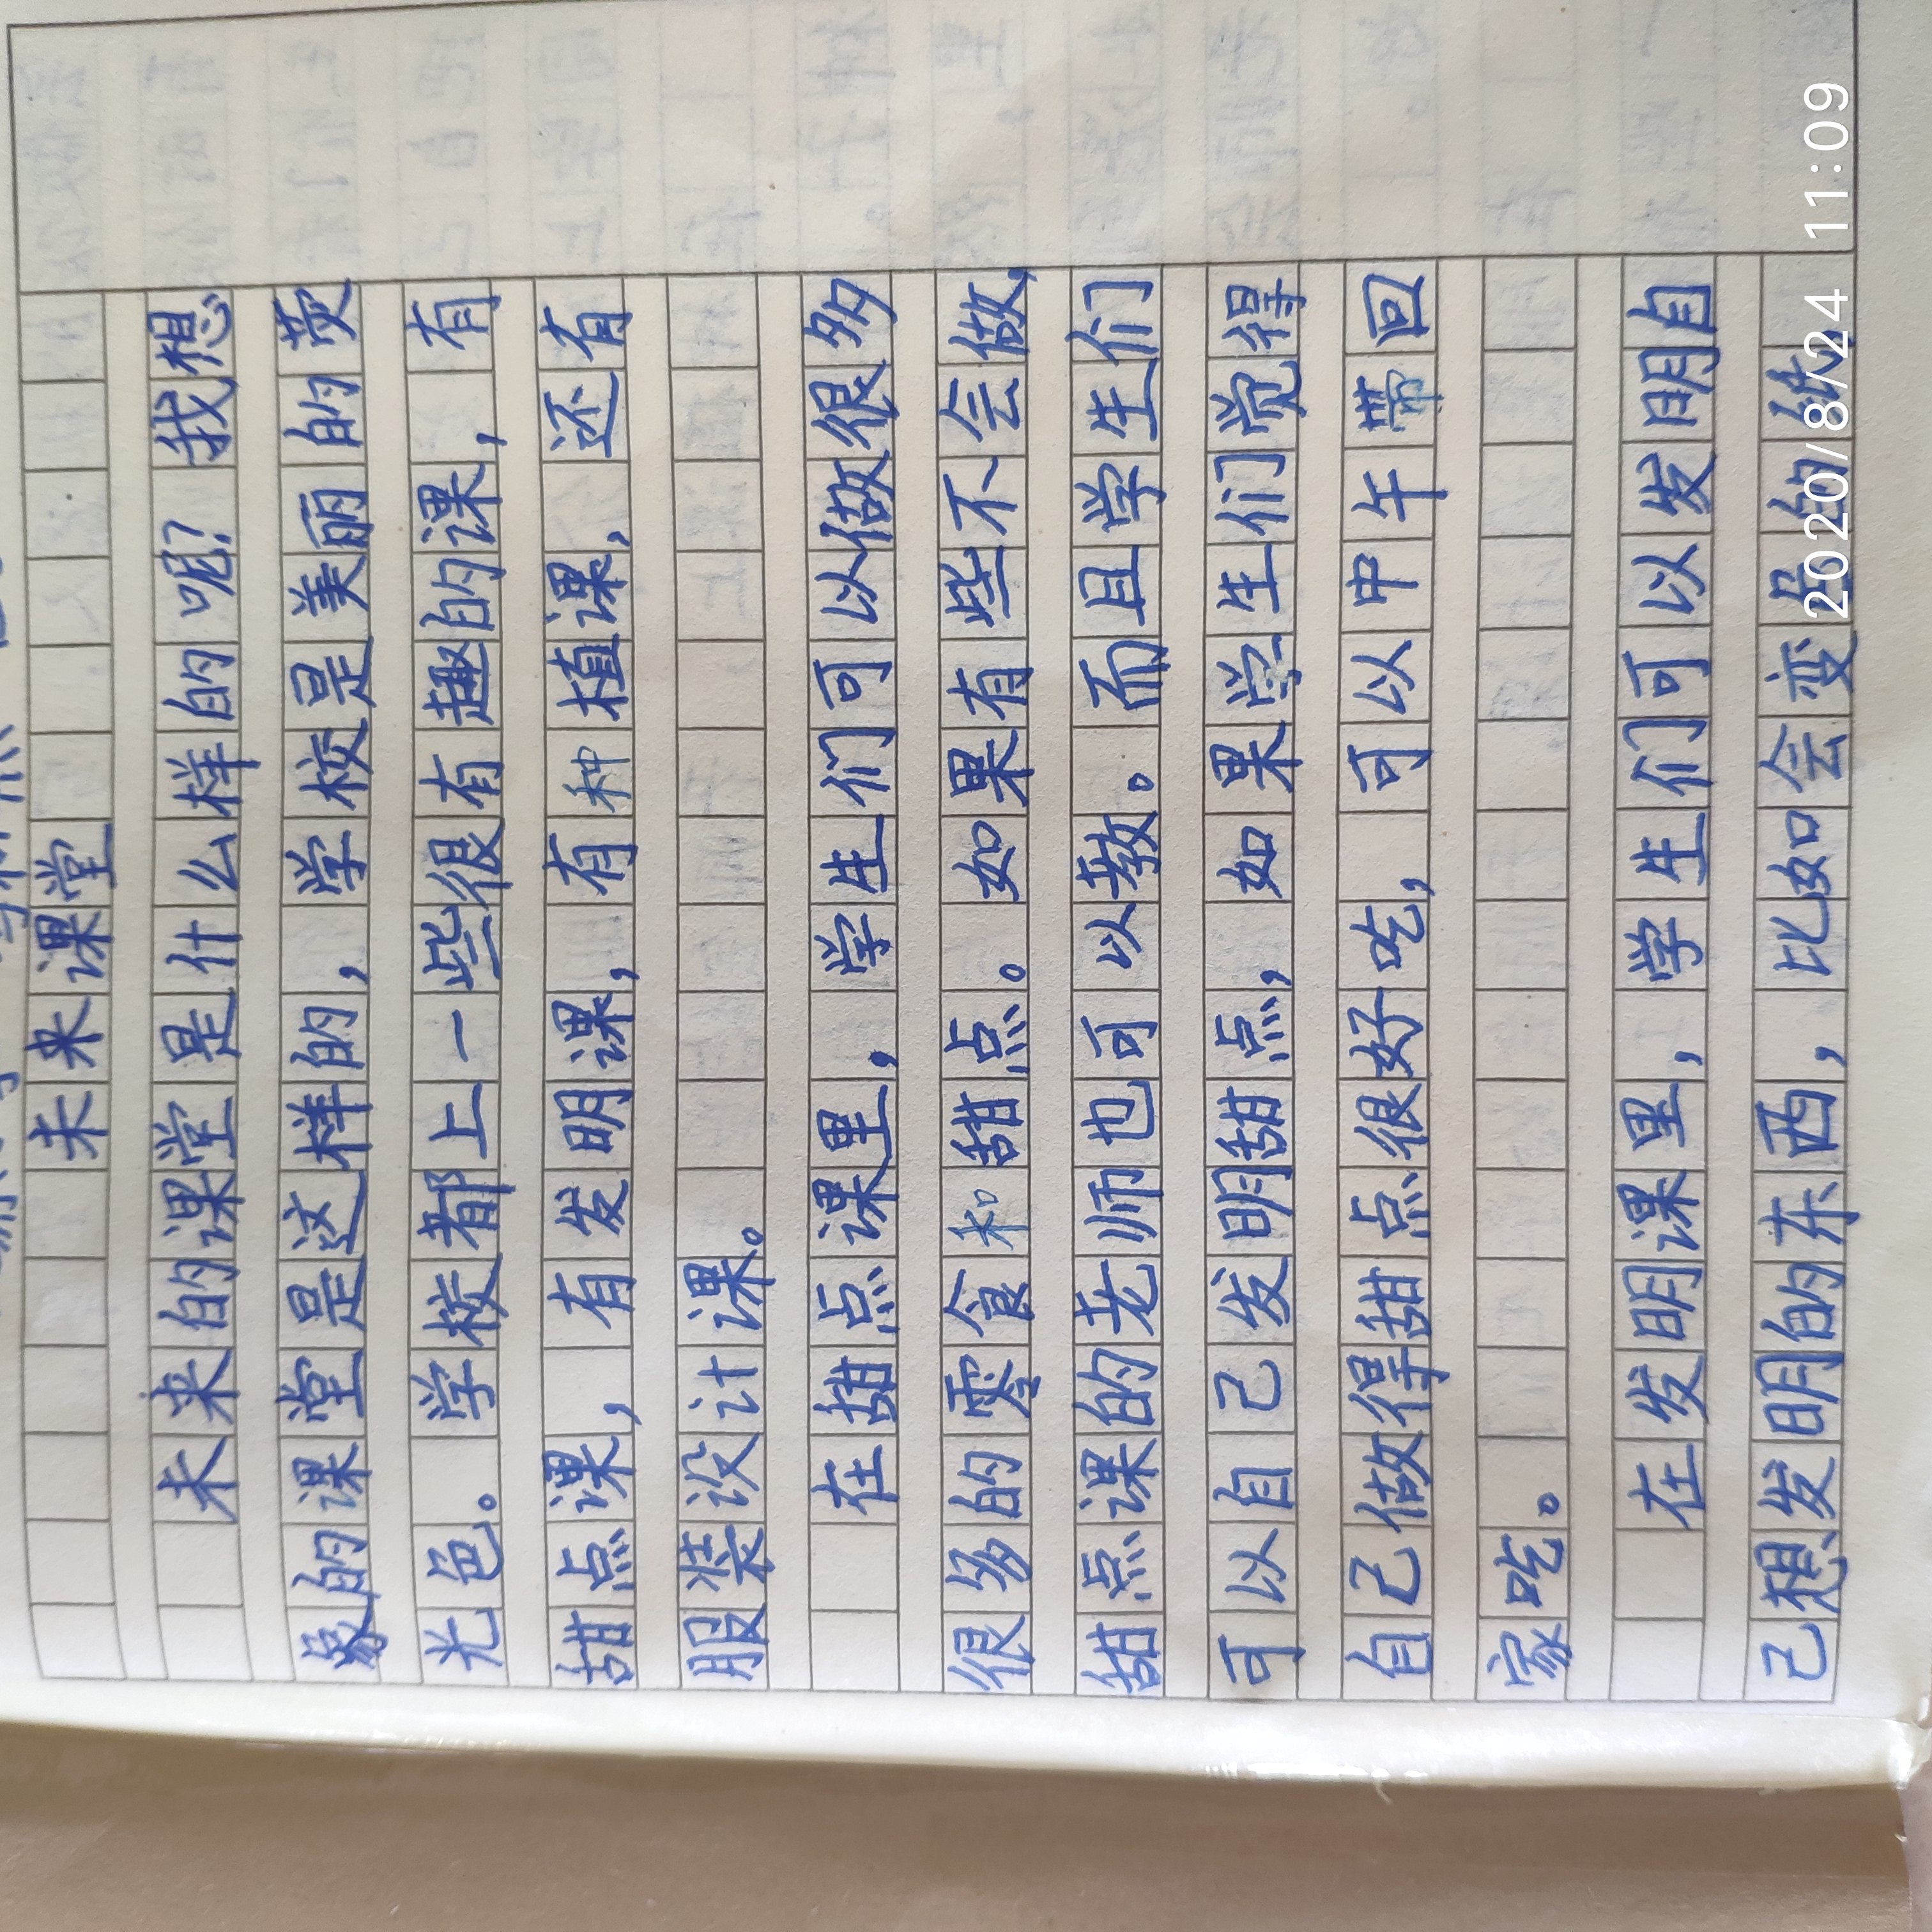 未来课堂
未来的课堂是什么样的呢?我想
象的课堂是这样的,学校是美丽的荧
光色。学校都上一些很有趣的课,有
甜点课,有发明课,有种植课,还有
服装设计课。
在甜点课里,学生们可以做很多
很多的零食和甜点。如果有些不会做,
甜点课的老师也可以教。而且学生们
可以自己发明甜点,如果学生们觉得
自己做得甜点很好吃,可以中午带回
家吃。
在发明课里,学生们可以发明自
己想发明的东西,比如会变色的
2020/8/24 11:09